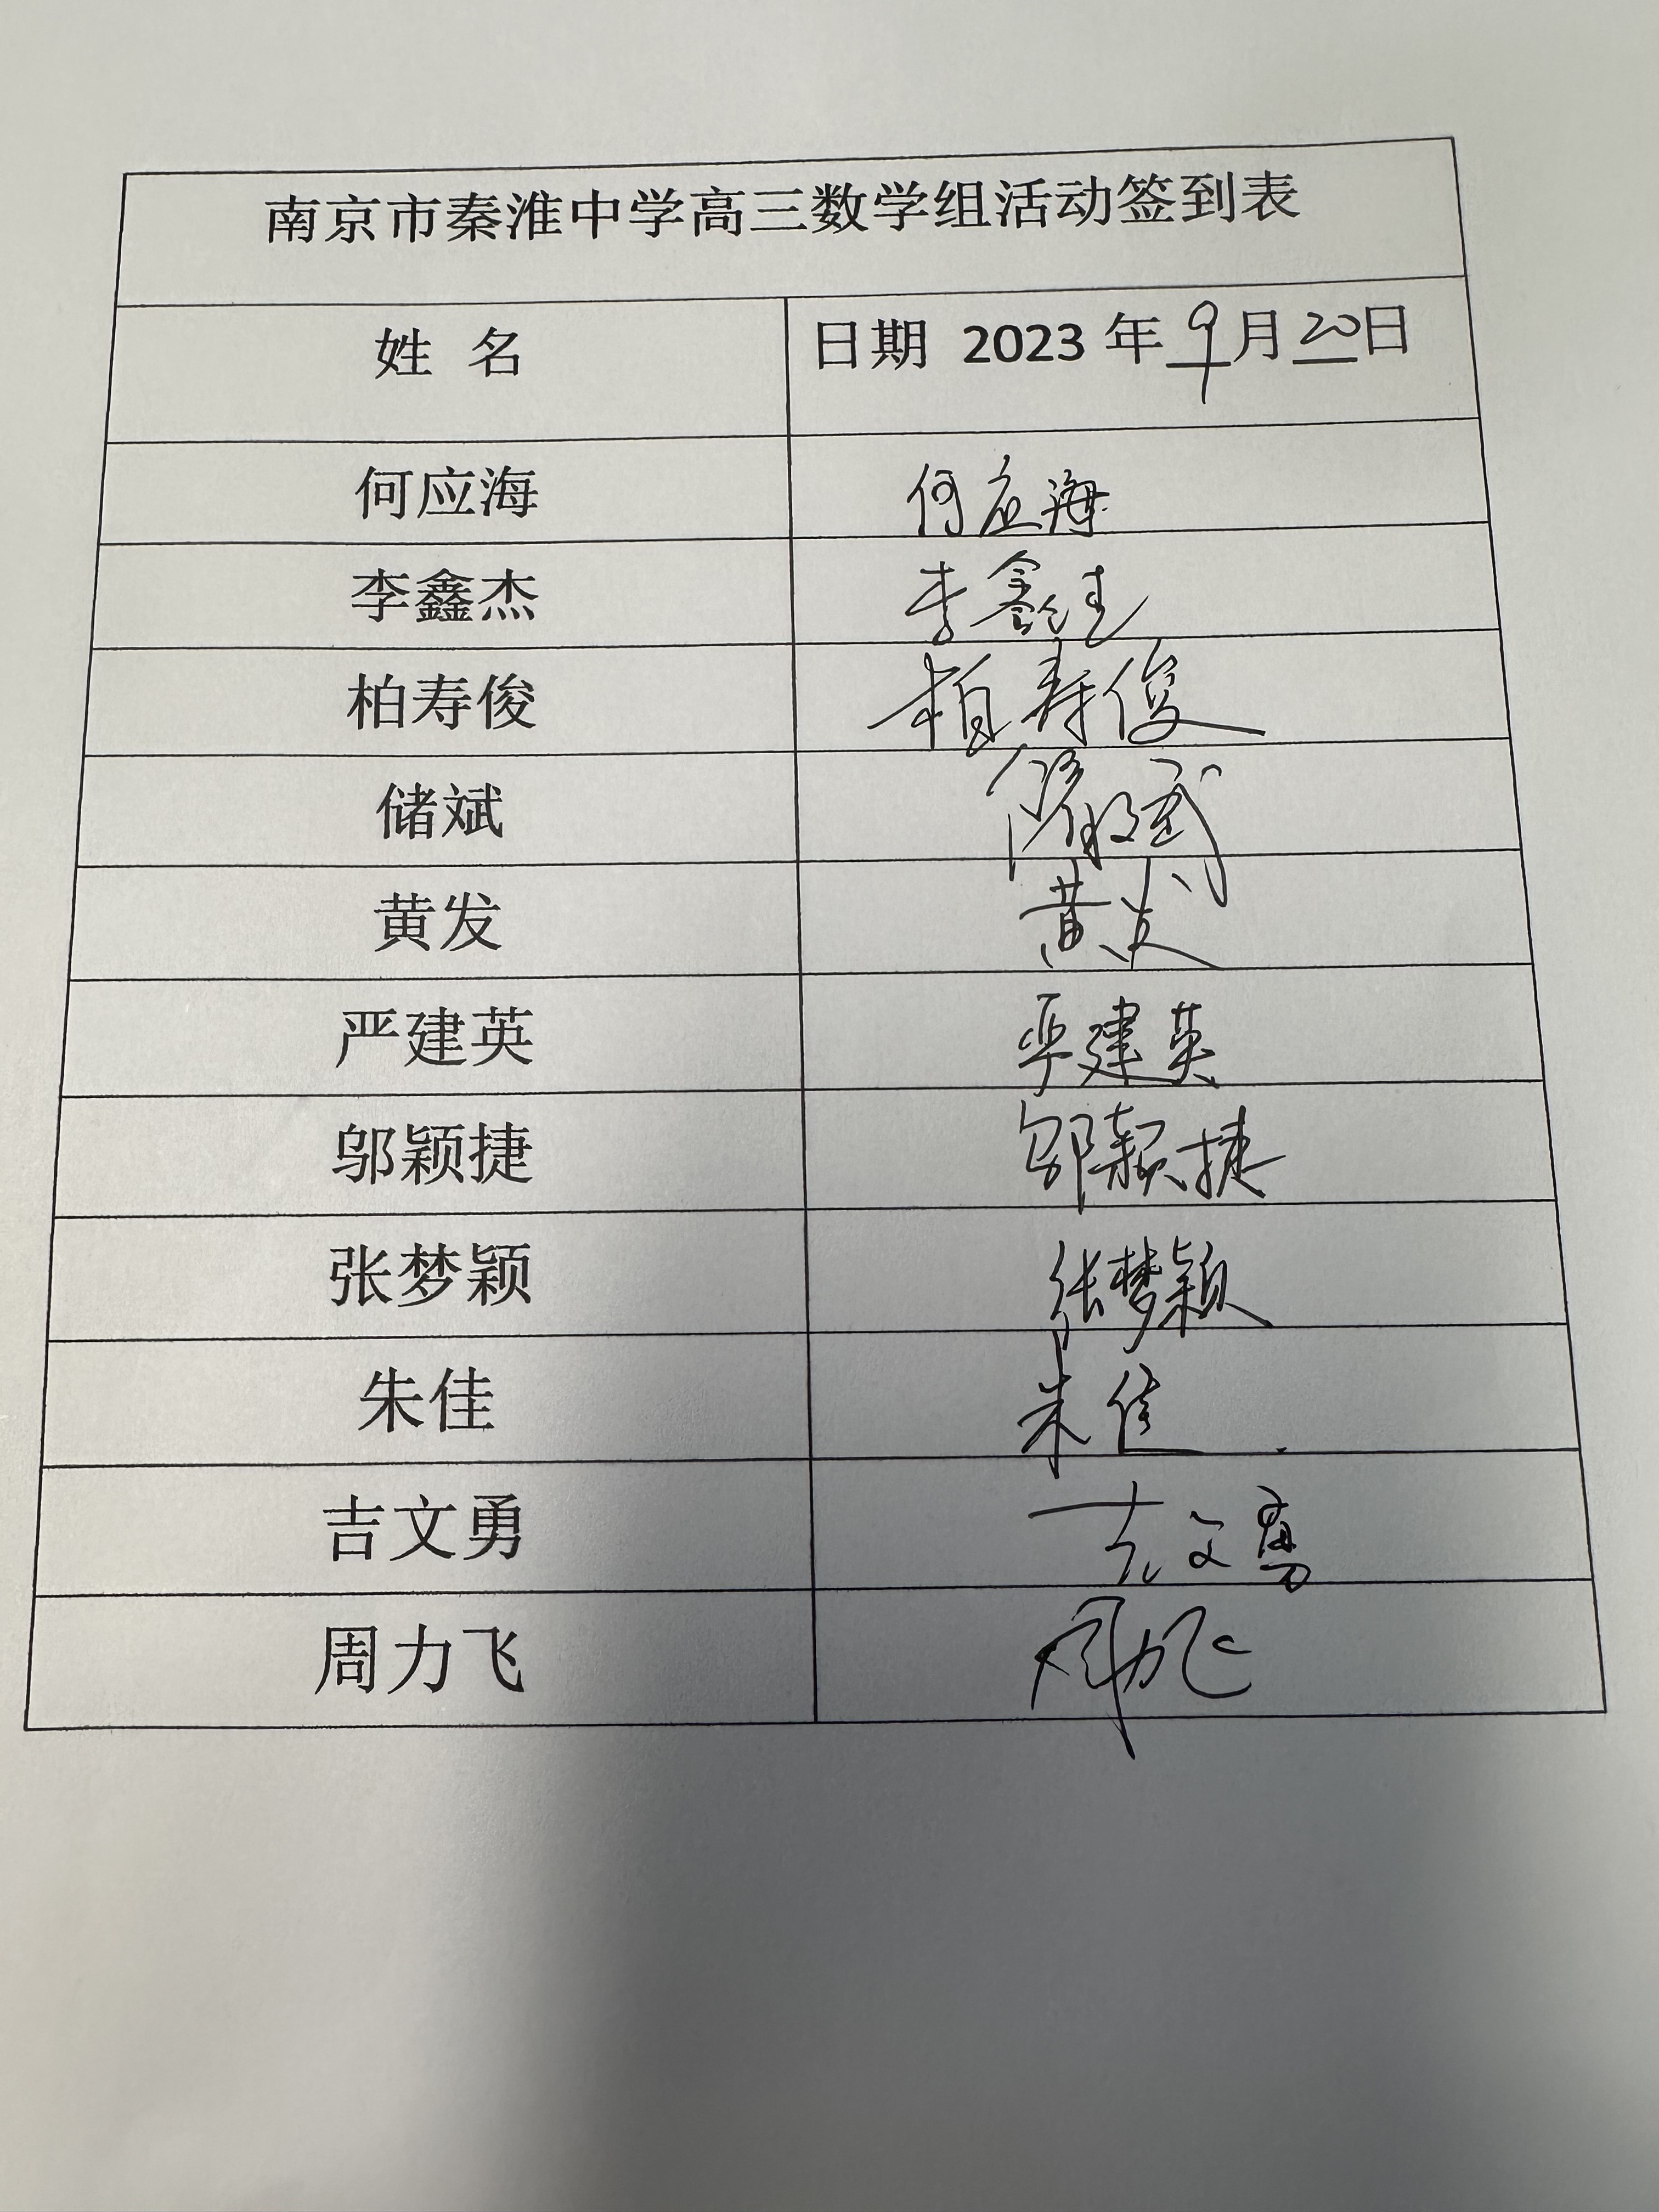 南京市秦淮中学高三数学组活动签到表
姓 名 日期 2023 年 9 月 20 日
何应海 何应海
李鑫杰 李鑫杰
柏寿俊 柏寿俊
储斌 储斌
黄发 黄发
严建英 严建英
邬颖捷 邬颖捷
张梦颖 张梦颖
朱佳 朱佳
吉文勇 吉文勇
周力飞 周力飞